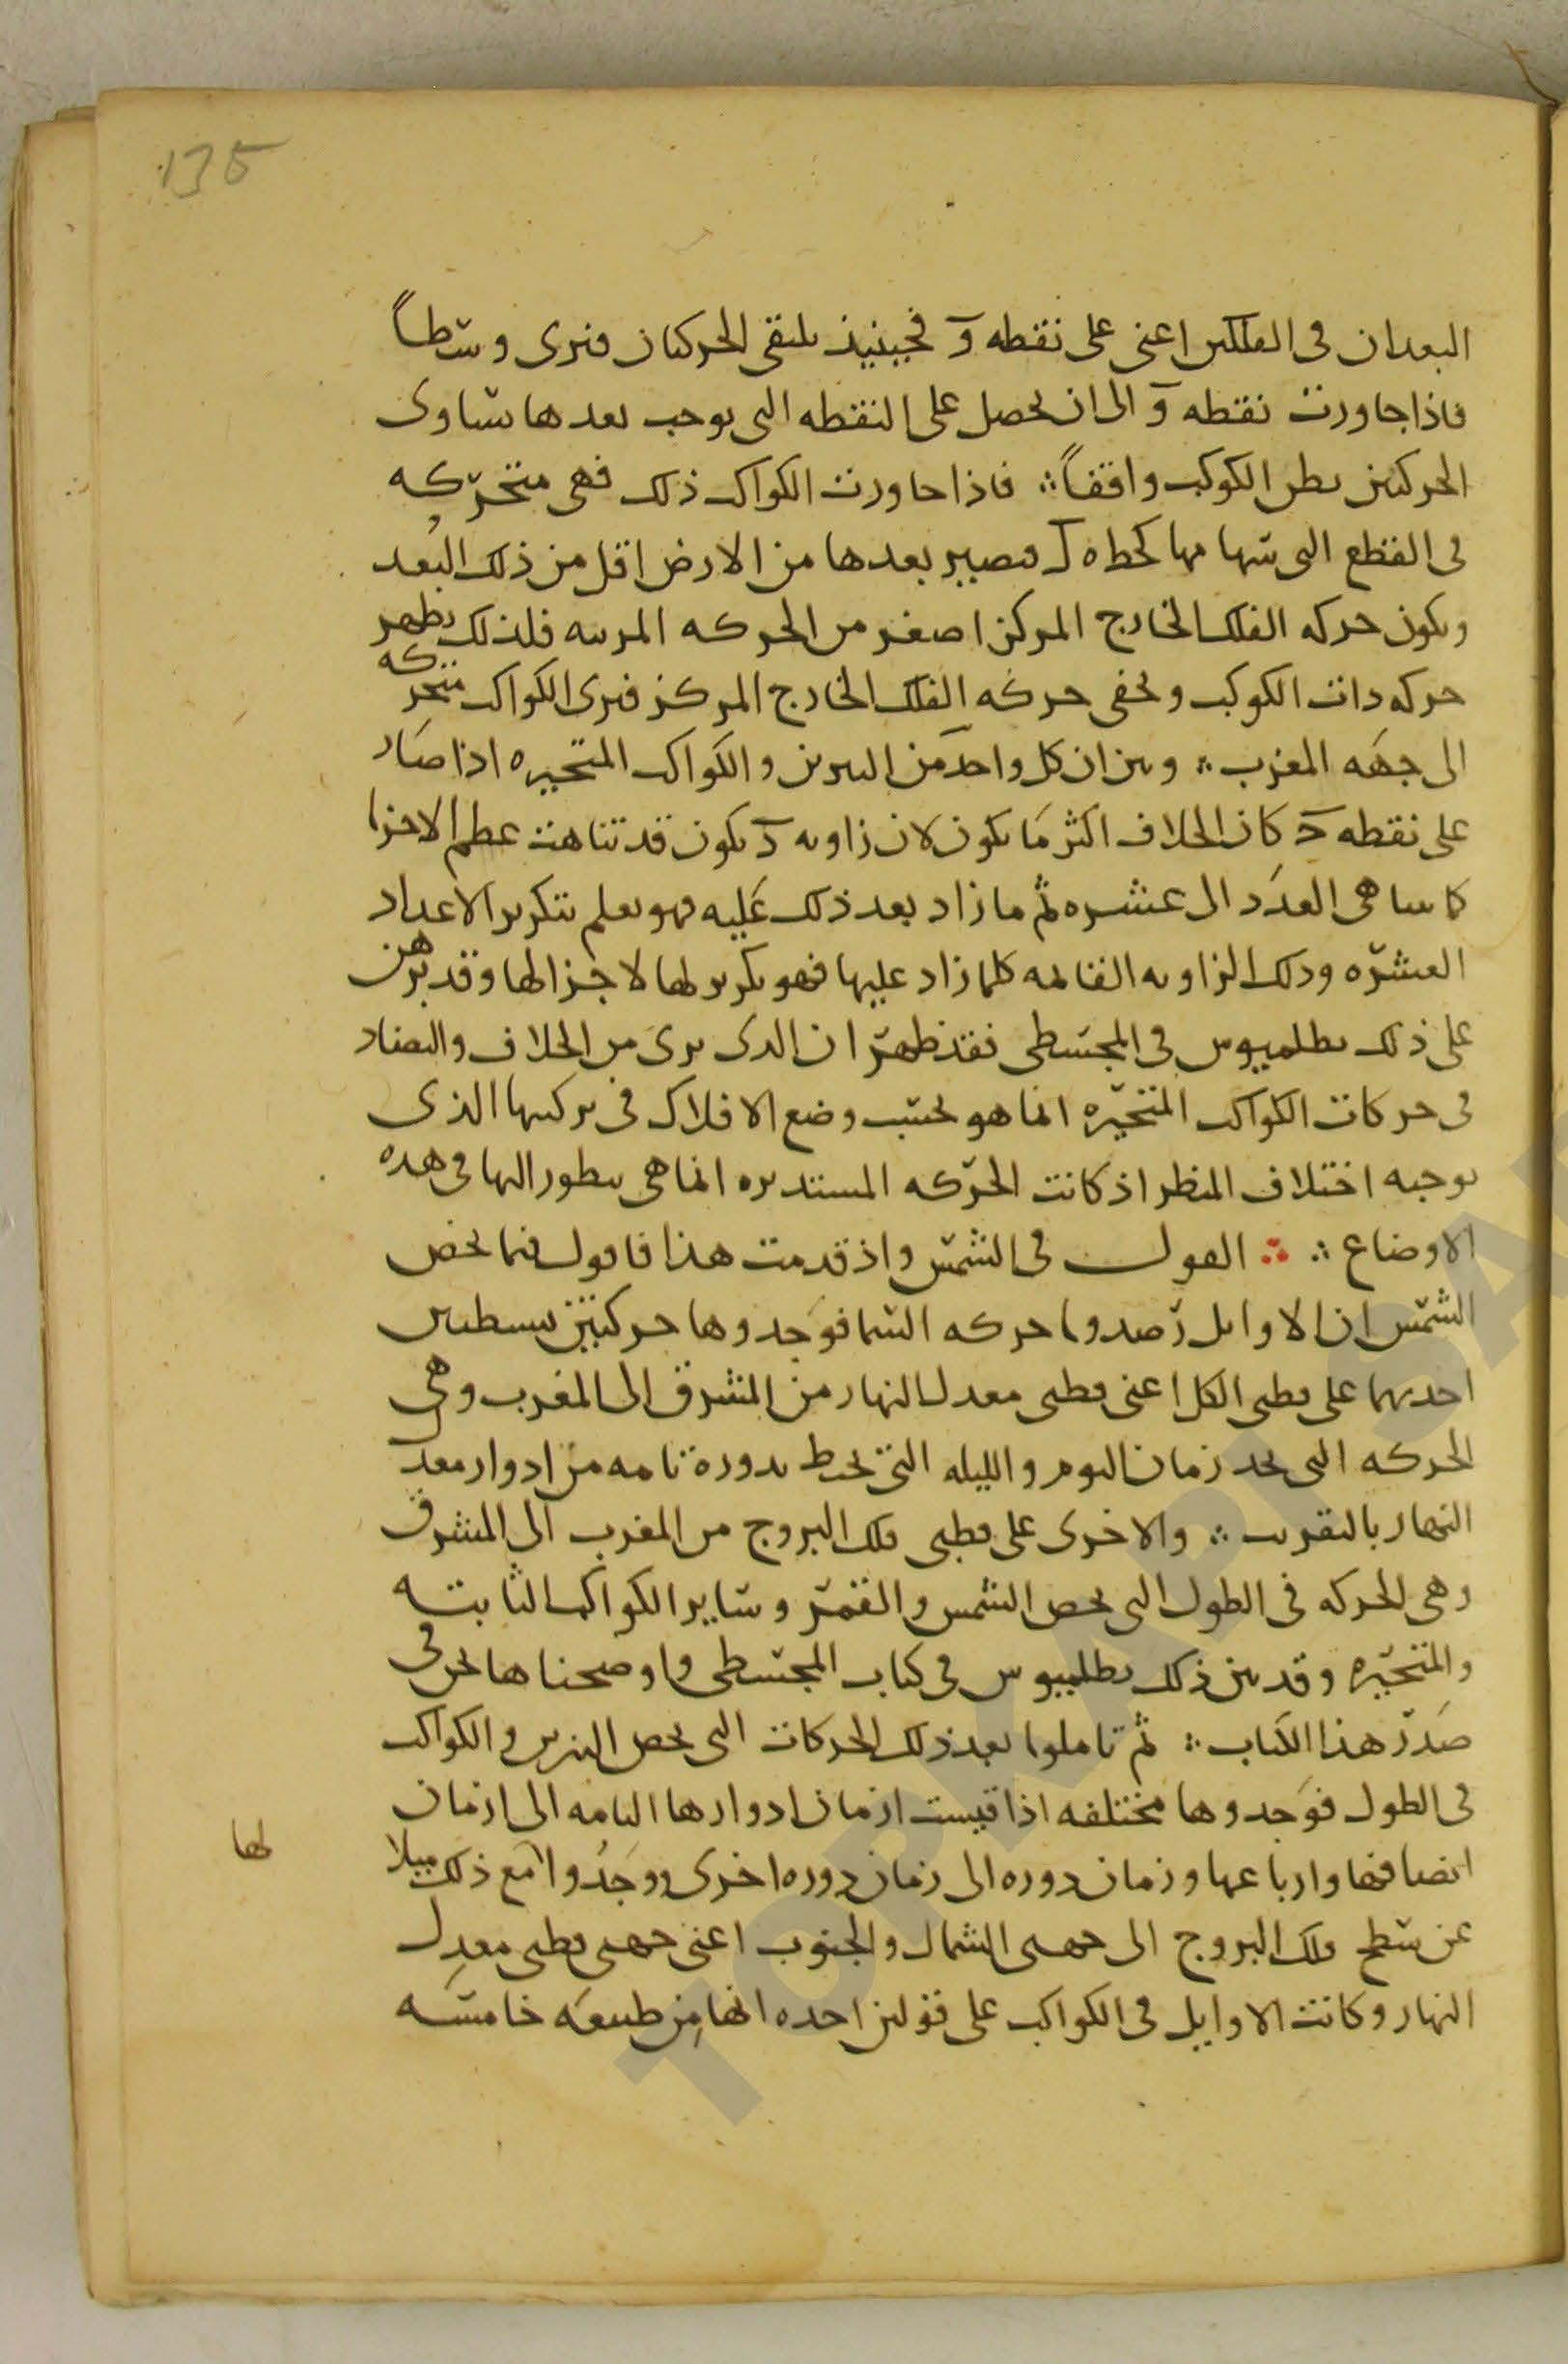 135
البعدان فى الفلكين اعنى على نقطه و فحينيذ يلتقى الحركتان فترى وسطاً
فاذا جاوزت نقطه و الى ان يحصل على النقطه التى يوجب بعدها تساوى
الحركتين يظن الكوكب واقفاً فاذا جاوزت الكواكب ذلك فهى متحركه
فى القطع التى فيصير بعدها من الارض اقل من ذلك البُعد
ويكون حركه الفلك الخارج المركز اصغر من الحركه المرييه فلذلك يظهر
حركه ذات الكوكب ويخفى حركه الفلك الخارج المركز فيرى الكواكب متحركه
الى جهه المغرب وبين ان كل واحد من النيرين والكواكب المتحيره اذا صار
على نقطه د كان الخلاف اكثر ما يكون لان زاويه د يكون قد تناهت عظم الاجزا
كما يتناهى العدد الى عشره ثم ما زاد بعد ذلك عليه فهو يعلم بتكرير الاعداد
العشره وذلك الزاويه القايمه كلما زاد عليها فهو تكرير لها لاجزالها وقد برهن
على ذلك بطلميوس فى المجسطى فقد ظهر ان الذى يرى من الخلاف والتضاد
فى حركات الكواكب المتحيره انما هو بحسب وضع الافلاك فى تركيبها الذى
يوجبه اختلاف المنظر اذ كانت الحركه المستديره انما هى ينظور اليها فى هذه
الاوضاع القول فى الشمس واذ قدمت هذا فاقول فيما يخص
الشمس ان الاوايل رصدوا حركه السما فوجدوها حركتين بسيطتين
احديهما على قطبى الكل اعنى قطبى معدل النهار من المشرق الى المغرب وهى
الحركه التى يحد زمان اليوم والليله التى يحيط بدوره تامه من ادوار معدل
النهار بالتقريب والاخرى على قطبى فلك البروج من المغرب الى المشرق
وهى الحركه فى الطول التى يخص الشمس والقمر وساير الكواكب الثابته
والمتحيره وقد بين ذلك بطلميوس فى كتاب المجسطى واوضحناها نحن فى
صدر هذا الكتاب ثم تاملوا بعد ذلك الحركات التى يخص النيرين والكواكب
فى الطول فوجدوها مختلفه اذا قيست ازمان ادوارها التامه الى ازمان
انصافها وارباعها وزمان دوره الى زمان دوره اخرى ووجدوا مع ذلك ميلا
لها
عن سطح فلك البروج الى جهتى الشمال والجنوب اعنى جهتى قطبى معدل
النهار وكانت الاوايل فى الكواكب على قولين احده انها من طبيعه خامسه
TOPKAPI SA